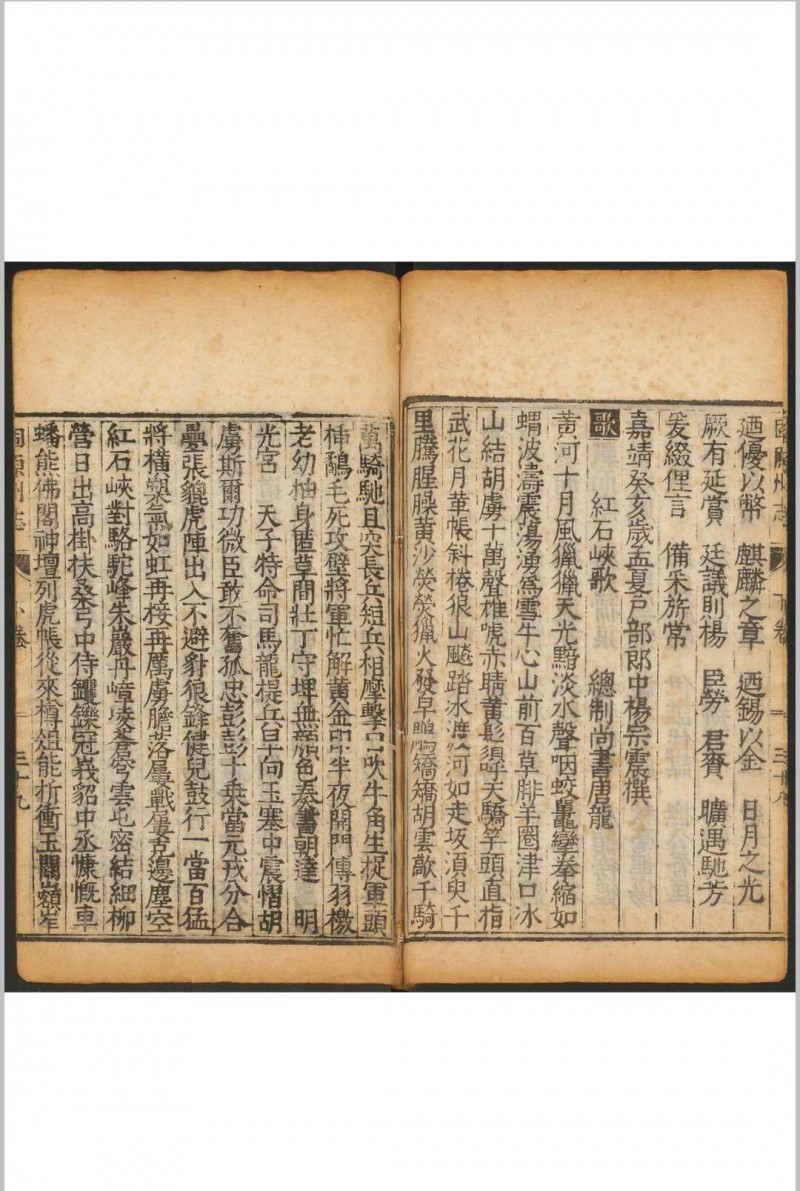 廼優以幣　麒麟之章　廼錫以金　日月之光
厥有延賞　廷議則楊　臣勞　君賚　曠遇馳芳
爰綴俚言　備采旂常
嘉靖癸亥歲孟夏戶部郎中楊宗震撰
歌　紅石峽歌　總制尚書唐龍
黃河十月風獵獵天光黯淡水聲咽蛟鼉攣拳縮如
蝟波濤震蕩湧爲雪牛心山前百草腓羊圈津口冰
山結胡虜十萬聲椎唬赤睛黃髟須呼天驕竿頭直指
武花月革帳斜捲狼山飈踏冰渡河如走坂湏臾千
里騰腥臊黃沙熒熒獵火發旱鵰矯矯胡雲敵千騎
萬騎馳且突長兵短兵相摩擊口吹牛角生挺軍頭
插鷸毛死攻壁將軍忙解黃金印半夜開門傳羽檄
老幼抽身匿草間壯丁守埤無顏色奏書朝達　明
光宮　天子特命司馬龍提兵早向玉塞中震慴胡
虜斯爾功微臣敢不奮孤忠彭彭十乘當元戎分合
疊張貔虎陣出入不避豺狼鋒健兒鼓行一當百猛
將橫槊氣如虹再接再厲虜膽落屢戰屢克邊塵空
紅石峽對駱駝峰朱巖丹嶂凌蒼穹雲屯密結細柳
營日出高掛扶桑弓中侍钁鑠冠義貂中丞慷慨車
蟠能佛閣神壇列虎帳從來樽俎能折衝玉關嶺崒
固原州志　三十九